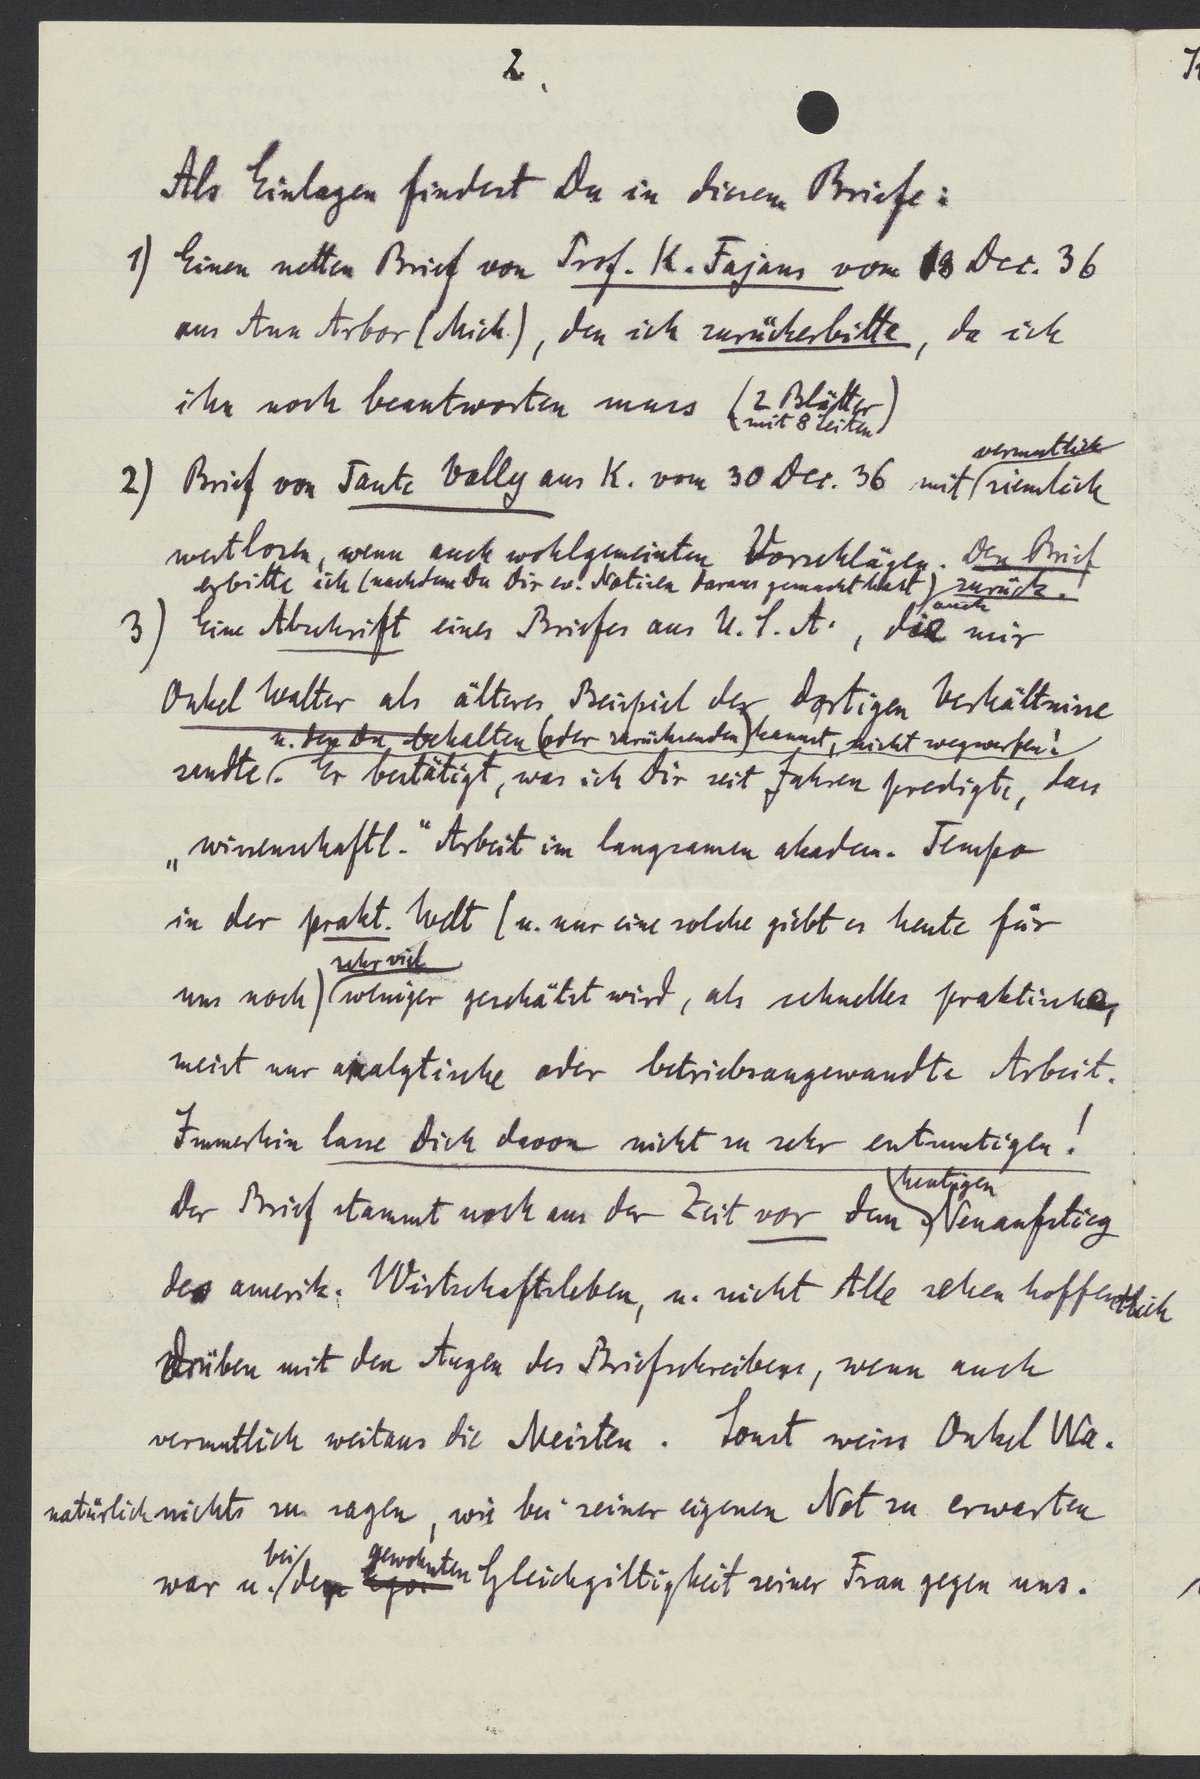 2.
Als Einlagen findest Du in diesem Briefe:
1) Einen netten Brief von Prof. K. Fajans vom 13 Dec. 36
aus Ann Arbor (Mich.), den ich zurückerbitte, da ich
ihn noch beantworten muss (2 Blätter
mit 8 Seiten)
vermutlich
2) Brief von Tante Vally aus K. vom 30 Dec. 36 mit ziemlich
wertlosen, wenn auch wohlgemeinten Vorschlägen. Den Brief
erbitte ich (nachdem Du Dir ev. Notizen daraus gemacht hast) zurück!
auch
3) Eine Abschrift eines Briefes aus U.S.A., die mir
Onkel Walter als älteres Beispiel der dortigen Verhältnisse
u. den Du behalten (oder zurücksenden) kannst, nicht wegwerfen!
sendte. Er bestätigt, was ich Dir seit Jahren predigte, dass
„wissenschaftl." Arbeit im langsamen akadem. Tempo
in der prakt. Welt (u. nur eine solche giebt es heute für
sehr viel
uns noch) weniger geschätzt wird, als schnelles praktische,
meist nur analytische oder betriebsangewandte Arbeit.
Immerhin lasse Dich davon nicht zu sehr entmutigen!
heutigen
Der Brief stammt noch aus der Zeit vor dem Neuaufstieg
des amerik. Wirtschaftsleben, u. nicht Alle sehen hoffentlich
drüben mit den Augen des Briefschreibers, wenn auch
vermutlich weitaus die Meisten. Sonst weiss Onkel Wa.
natürlich nichts zu sagen, wie bei seiner eigenen Not zu erwarten
bei gewohnten
war u. der Gleichgiltigkeit seiner Frau gegen uns.